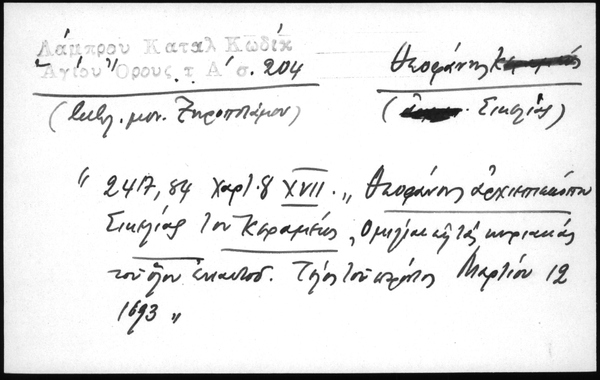 Λάμπρου Καταλ Κωδίκ
Ἁγίου Ὄρους τ Α΄ σ. 204
Θεοφάνης
(βιβλ. μον. Ξηροποτάμου)
( Σικελίας)
" 2417, 84 χαρτ. 8 XVII. „ Θεοφάνους ἀρχιεπισκόπου
Σικελίας τοῦ Κεραμέως, Ὁμιλίαι εἰς τὰς κυριακὰς
τοῦ ὅλου ἐνιαυτοῦ. Τέλος τοῦ Μαρτίου 12
1693 „